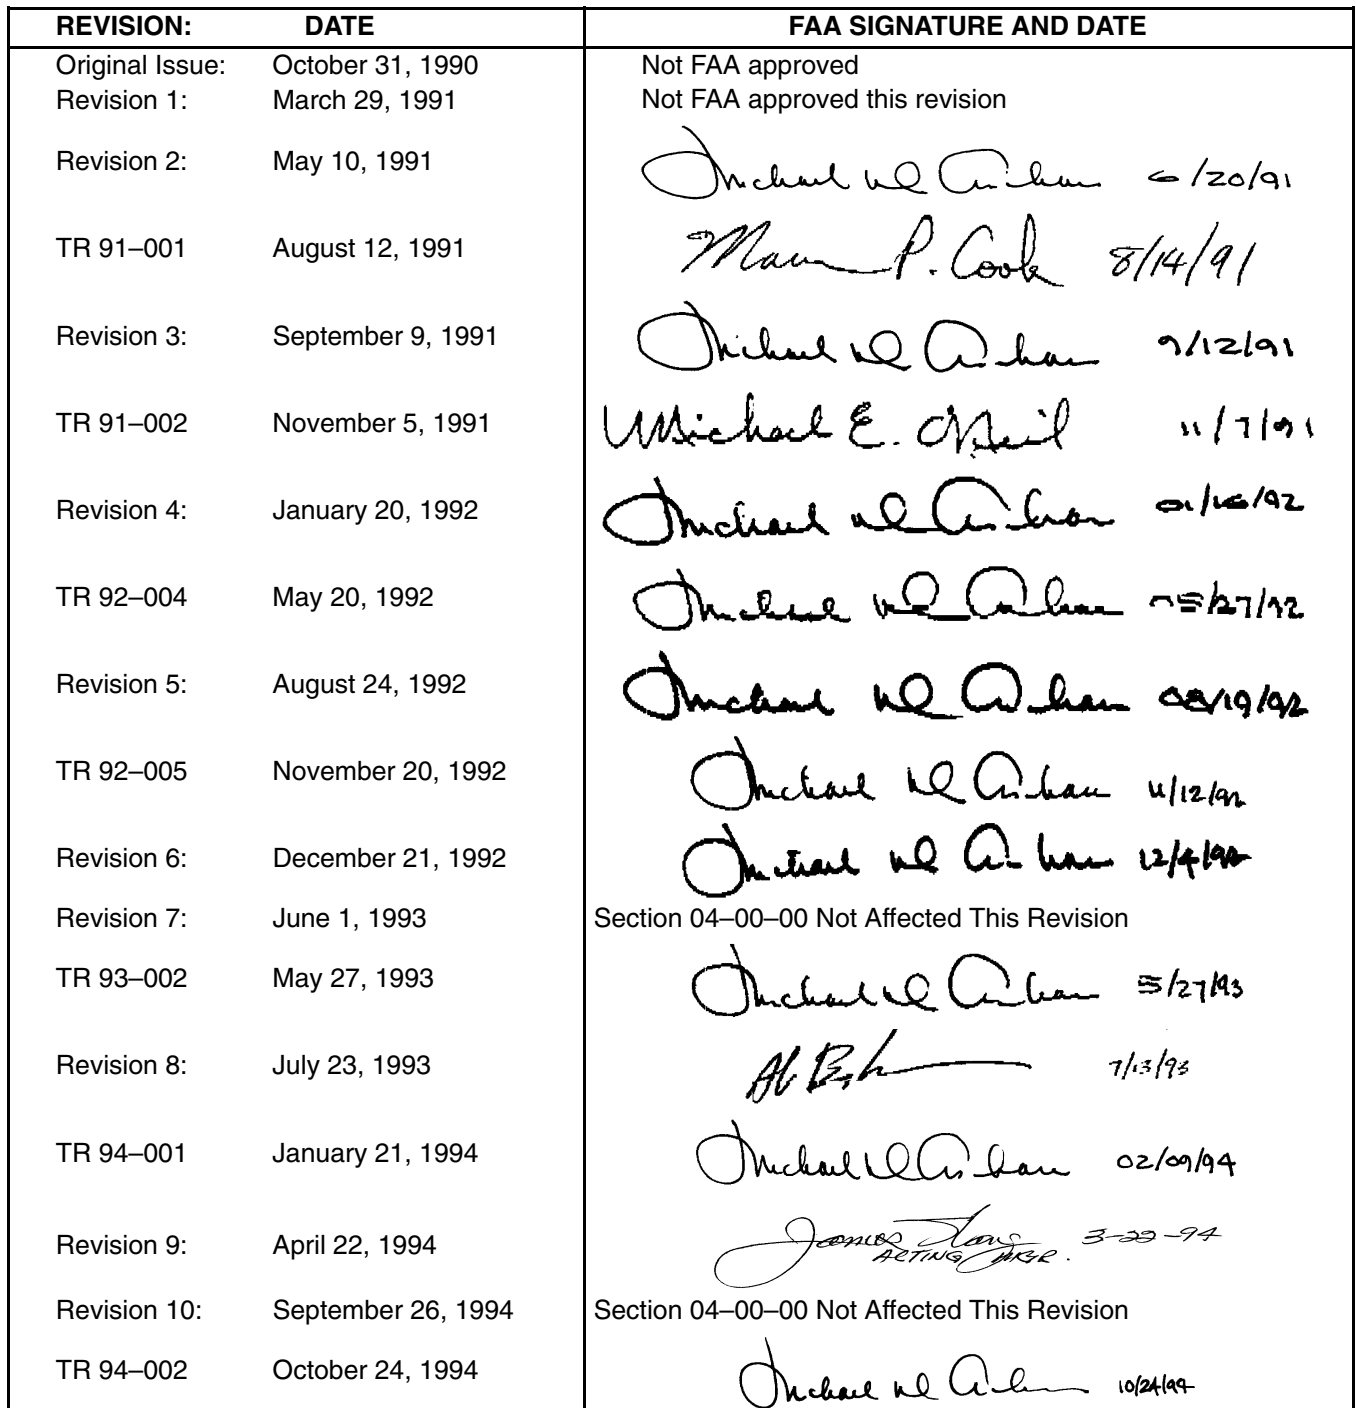 REVISION: DATE FAA SIGNATURE AND DATE
Original Issue: October 31, 1990 Not FAA approved
Revision 1: March 29, 1991 Not FAA approved this revision
Revision 2: May 10, 1991 Michael 6/20/91
TR 91–001 August 12, 1991 P. Cook 8/14/91
Revision 3: September 9, 1991 Michael 9/12/91
TR 91–002 November 5, 1991 Michael E. O'Neil 11/7/91
Revision 4: January 20, 1992 Michael 01/16/92
TR 92–004 May 20, 1992 Michael 05/27/92
Revision 5: August 24, 1992 Michael 08/19/92
TR 92–005 November 20, 1992 Michael 11/12/92
Revision 6: December 21, 1992 Michael 12/4/92
Revision 7: June 1, 1993 Section 04–00–00 Not Affected This Revision
TR 93–002 May 27, 1993 Michael 5/27/93
Revision 8: July 23, 1993 7/13/93
TR 94–001 January 21, 1994 Michael 02/09/94
Revision 9: April 22, 1994 James 3-22-94
ACTING
Revision 10: September 26, 1994 Section 04–00–00 Not Affected This Revision
TR 94–002 October 24, 1994 Michael 10/24/94